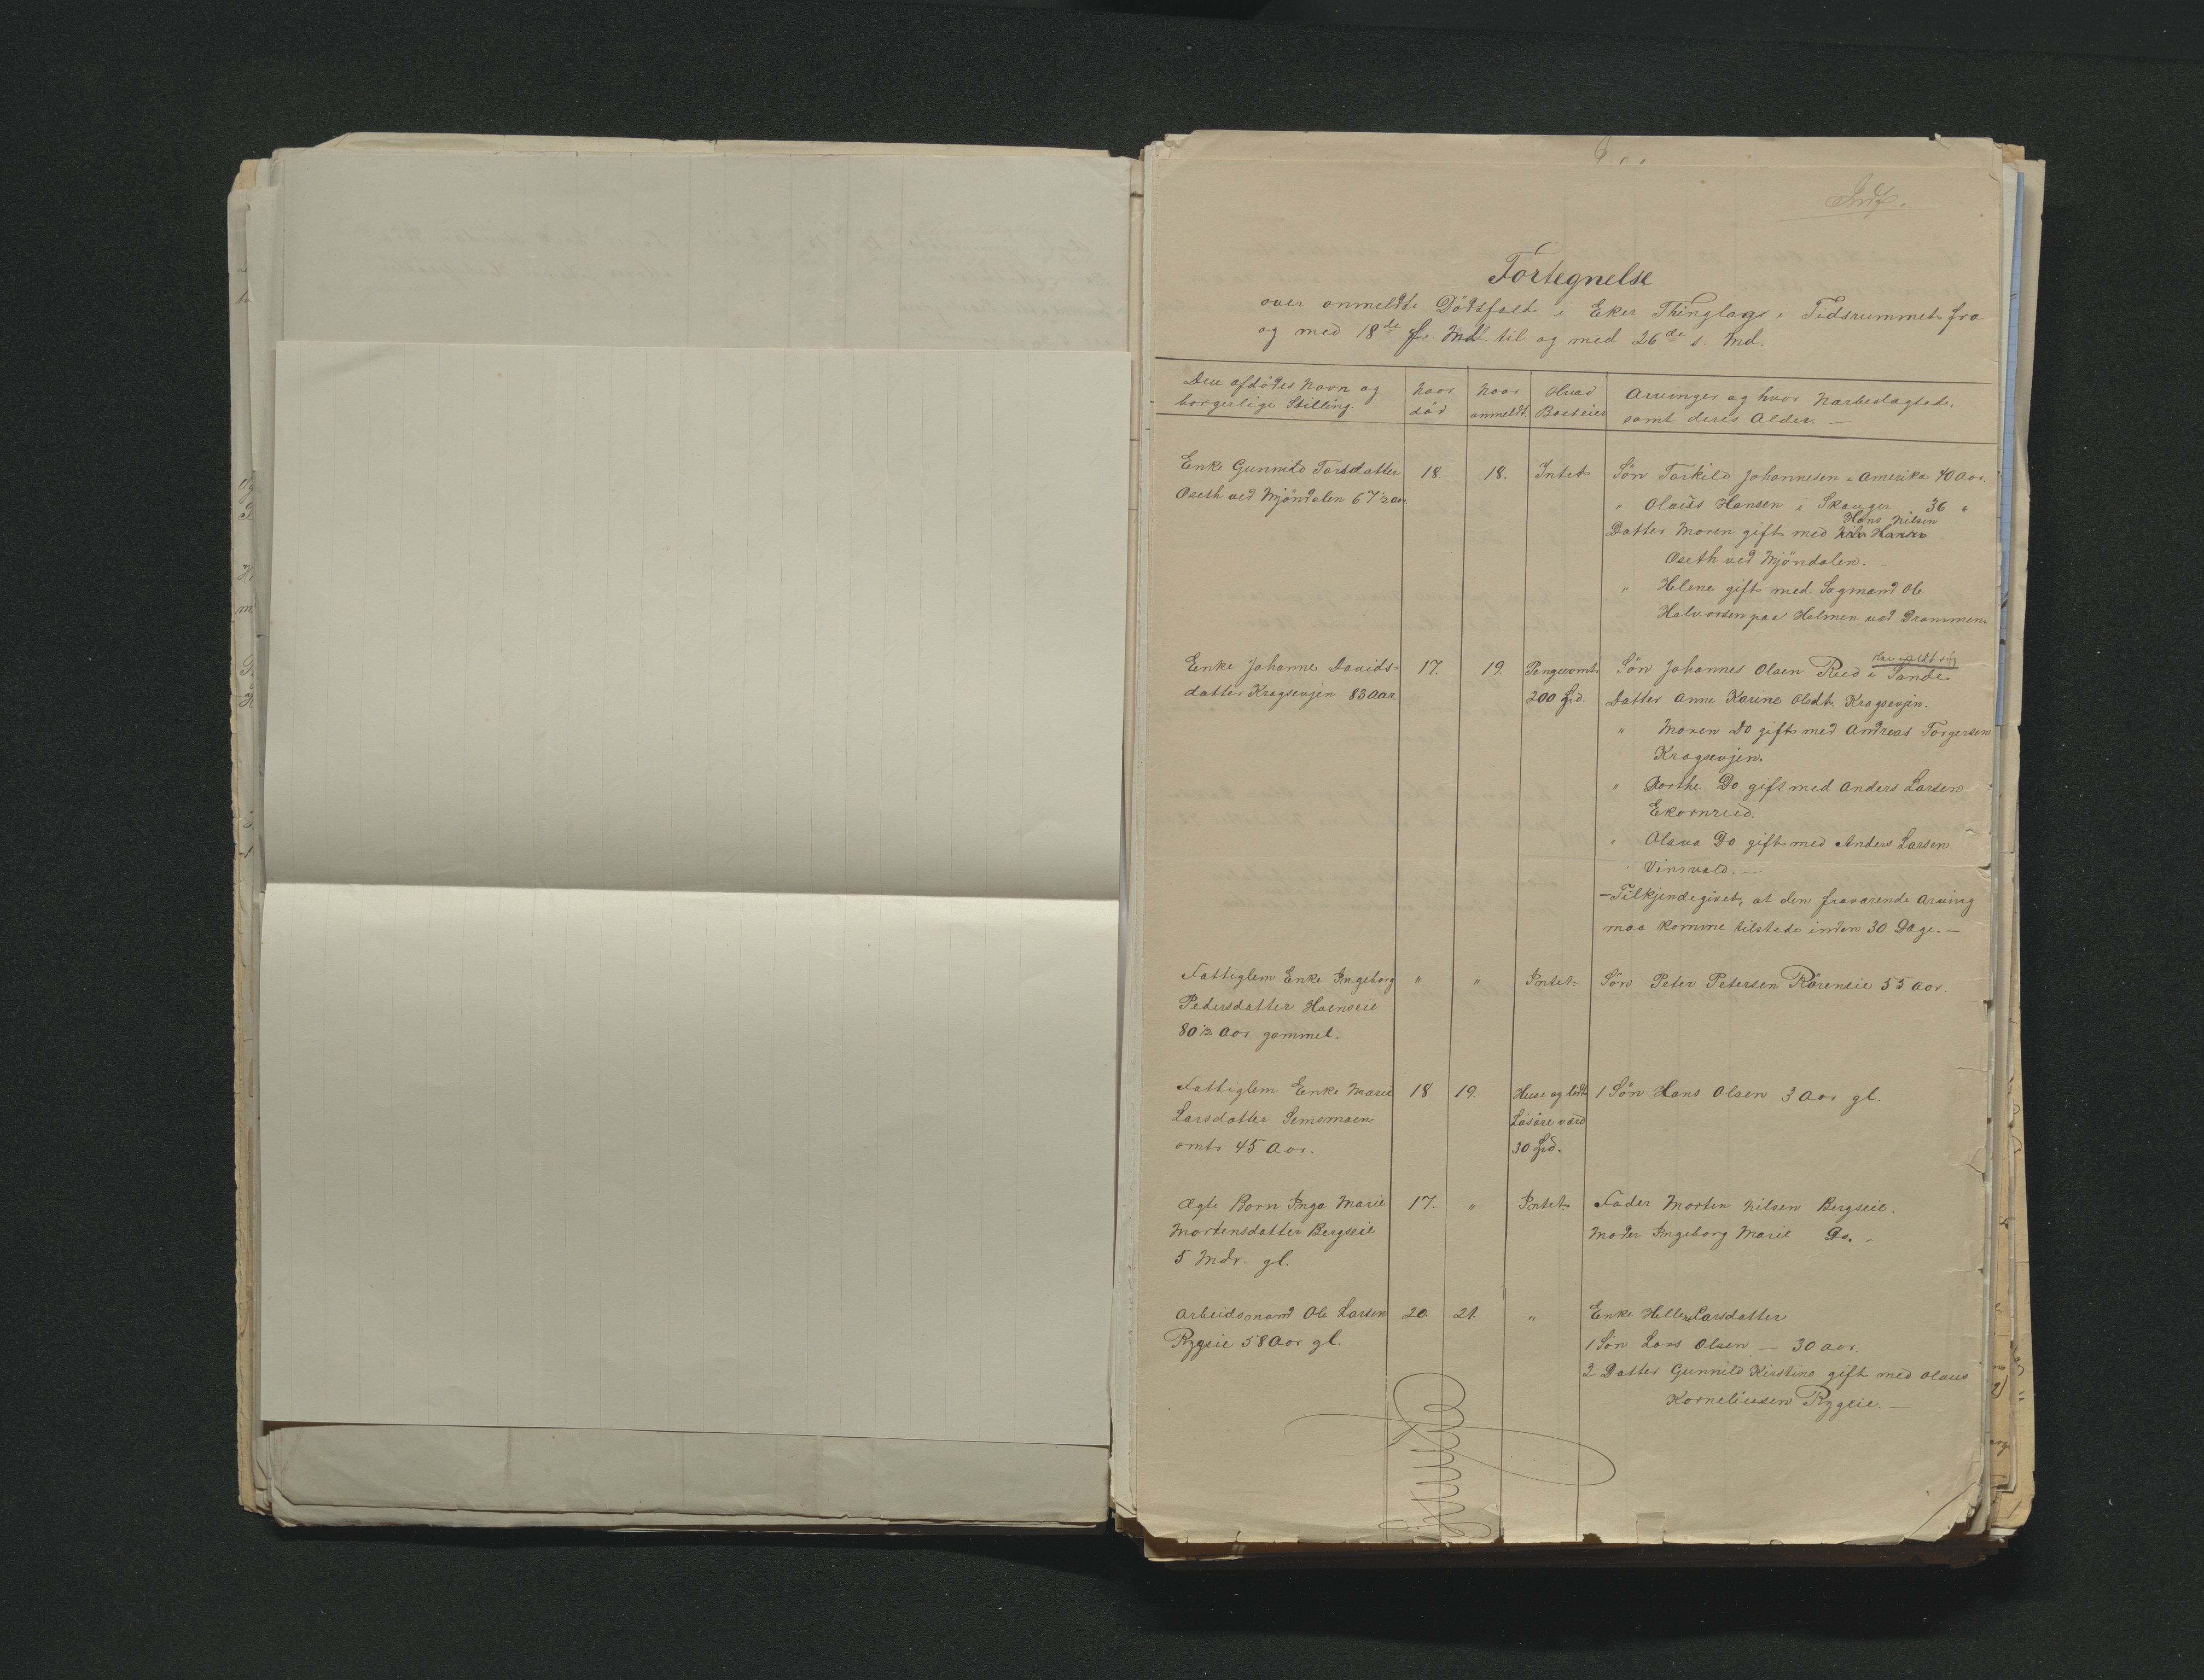 Indf.
Fortegnelse
over anmeldte Dödsfald i Eker Thinglag i Tidsrummet fra
og med 18de f. Md. til og med 26de s. Md.
Den afdödes Navn og
borgerlige Stilling.
Naar
död
Naar
anmeldt.
Hvad
Boet eier
Arvinger og hvor nærbeslægtede,
samt deres Alder. —
Enke Gunnild Torsdatter
Oseth ved Mjöndalen 67½ aar
18.
18.
Intet
Sön Torkild Johannesen i Amerika 40 Aar.
" Olaüs Hansen i Skauger 36 "
Hans Nilsen
Datter Maren gift med Nils Hansen
Oseth ved Mjöndalen.
" Helene gift med Sagmand Ole
Halvorsen paa Holmen ved Drammen.
Enke Johanne Davids-
datter Kragsevjen 83 Aar
17.
19.
Penge omtr
200 Spd.
Sön Johannes Olsen Rud i Sande
Datter Anne Karine Olsdt. Kragsevjen.
" Maren Do gift med Andreas Torgersen
Kragsevjen.
" Dorthe Do gift med Anders Larsen
Ekornrud.
" Olava Do gift med Anders Larsen
Vinsvold. —
— Tilkjendegivet, at den fraværende Arving
maa komme tilstede inden 30 Dage. —
Fattiglem Enke Ingeborg
Pedersdatter Hoenseie
80½ Aar gammel.
"
"
Intet.
Sön Peter Petersen Rörenseie 55 Aar.
Fattiglem Enke Marie
Larsdatter Semsmoen
omtr 45 Aar.
18
19.
Huse og lidt
Lösöre værd
30 Spd.
1 Sön Hans Olsen 3 Aar gl.
Ægte Barn Inga Marie
Mortensdatter Bergseie
5 Mdr. gl.
17.
"
Intet
Fader Morten Nilsen Bergseie.
Moder Ingeborg Marie Do. "
Arbeidsmand Ole Larsen
Rygeie 58 Aar gl.
20.
21.
"
Enke Helle Larsdatter
1 Sön Lars Olsen — 30 aar.
2 Datter Gunnild Kirstine gift med Olaus
Korneliusen Rygeie. —